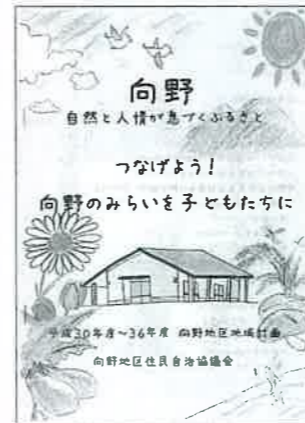 向野
自然と人情が息づくふるさと
つなげよう！
向野のみらいを子どもたちに
平成30年度～36年度 向野地区地域計画
向野地区住民自治協議会